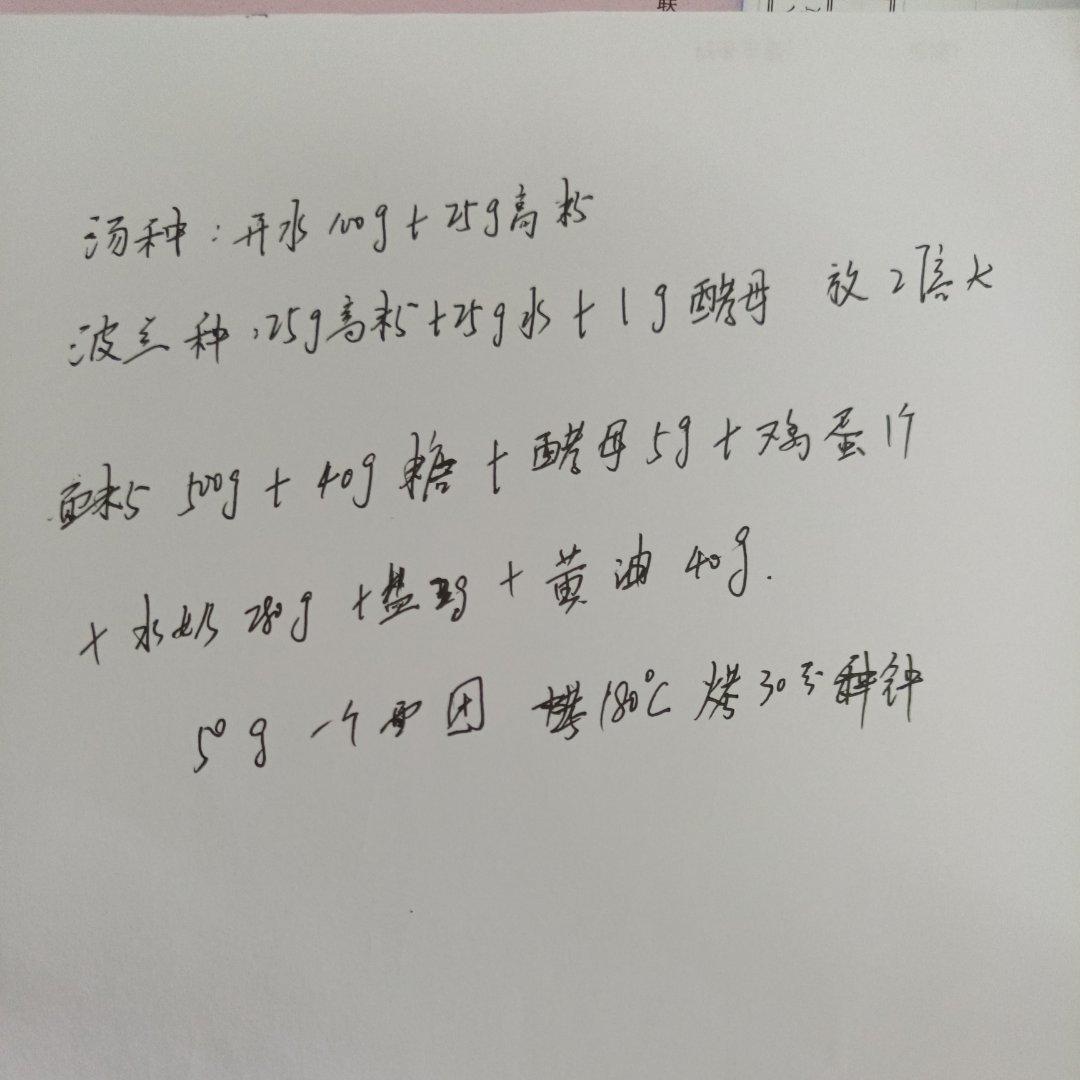 联
汤种:开水100g+25g高粉
波兰种:25g高粉+25g水+1g酵母 放2倍大
面粉500g+40g糖+酵母5g+鸡蛋1个
+水奶280g+盐g+黄油40g.
50g一个面团 烤180℃烤30分钟